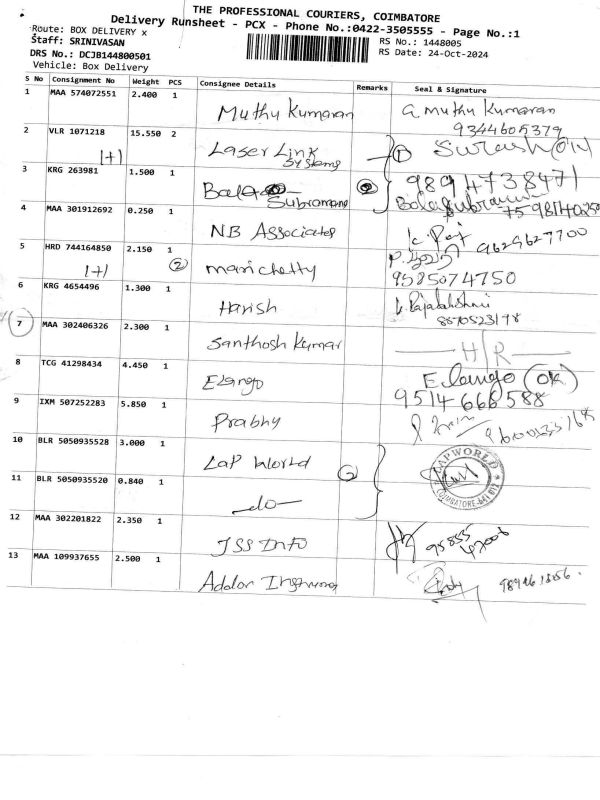 THE PROFESSIONAL COURIERS, COIMBATORE
Delivery Runsheet - PCX - Phone No.:0422-3505555 - Page No.:1
Route: BOX DELIVERY x
Staff: SRINIVASAN
RS No.: 1448005
DRS No.: DCJB144800501
RS Date: 24-Oct-2024
Vehicle: Box Delivery
S No Consignment No Weight PCS Consignee Details Remarks Seal & Signature
1 MAA 574072551 2.400 1 Muthu Kumaran G Muthu Kumaran
9344605379
2 VLR 1071218 15.550 2 Laser Link Systems 1
1+1
3 KRG 263981 1.500 1 Bala Subramani 2 9894738471
4 MAA 301912692 0.250 1 NB Associates
9629627700
5 HRD 744164850 2.150 1 2 marichetty
1+1 9585074750
6 KRG 4654496 1.300 1 Harish
7 MAA 302406326 2.300 1 Santhosh Kumar H/R
8 TCG 41298434 4.450 1 Elango Elango OK
9514666588
9 IXM 507252283 5.850 1 Prabhu
10 BLR 5050935528 3.000 1 Lap World LAP WORLD
COIMBATORE-641 012
11 BLR 5050935520 0.840 1 do
12 MAA 302201822 2.350 1 JSS Info
13 MAA 109937655 2.500 1 Addon